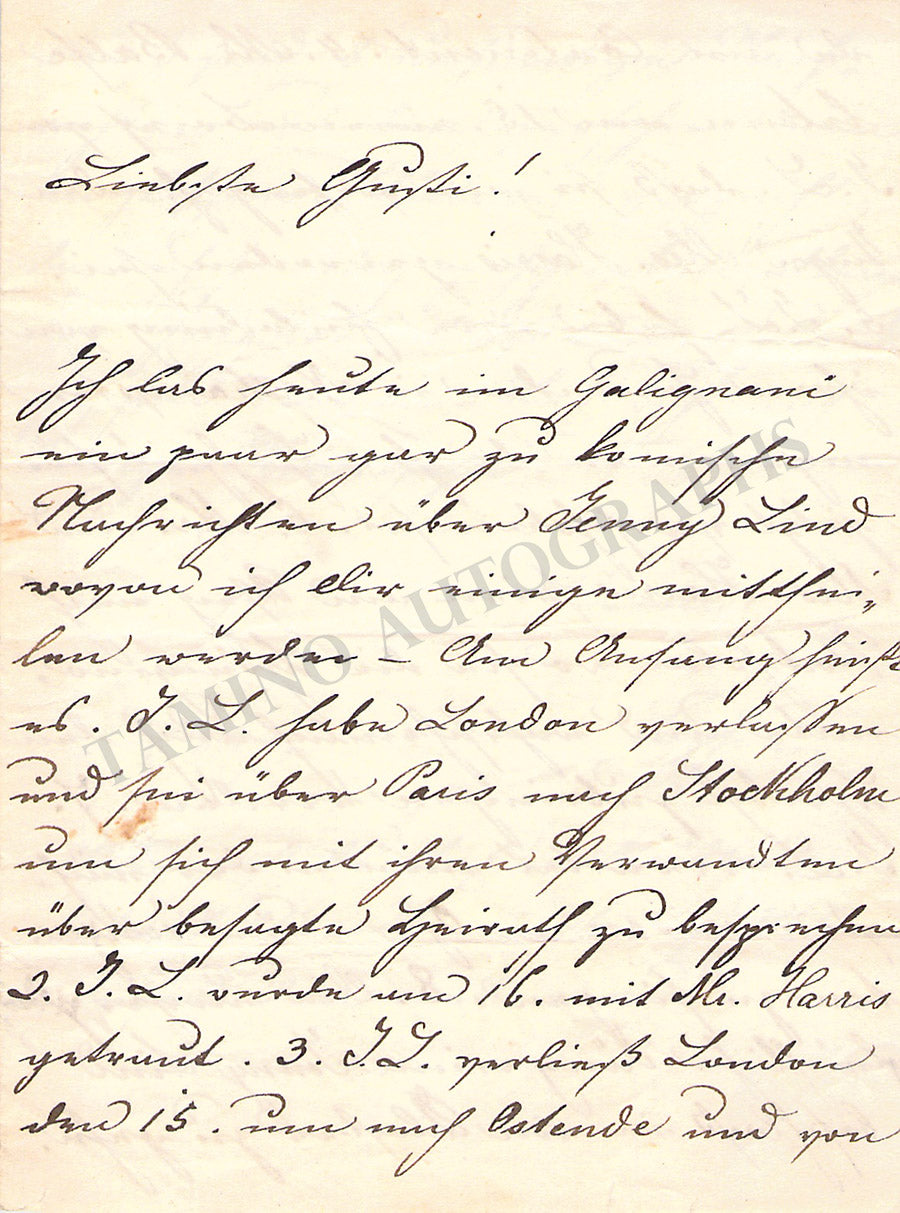 Liebste Gusti!
Ich las heute im Galignani
ein paar gar zu komische
Nachrichten über Jenny Lind
wovon ich Dir einige mitthei-
len werde – Am Anfang heißt
es. J. L. habe London verlassen
und sei über Paris nach Stockholm
um sich mit ihren Verwandten
über besagte Heirath zu besprechen
2. J. L. wurde am 16. mit Mr. Harris
getraut. 3. J. L. verließ London
den 15. um nach Ostende und von
TAMINO AUTOGRAPHS